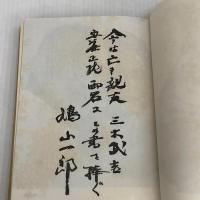 今は亡き親友 三木武吉
安藤正純 両君に この書を捧ぐ
鳩山一郎